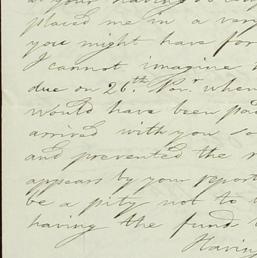 placed me in a very
you might have for
I cannot imagine
due on 26th Novr. when
would have been paid
arrived with you so
and prevented the
appears by your report
be a pity not to
having the fund
Having